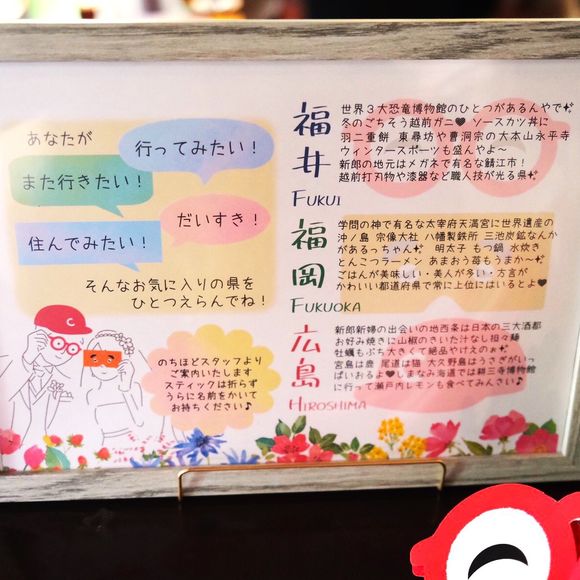 あなたが
行ってみたい!
また行きたい!
だいすき!
住んでみたい!
そんなお気に入りの県を
ひとつえらんでね!
C
のちほどスタッフより
ご案内いたします
スティックは折らず
うらに名前をかいて
お持ちください♪
福井
FUKUI
世界3大恐竜博物館のひとつがあるんやで
冬のごちそう越前ガニ♥ ソースカツ丼に
羽二重餅 東尋坊や曹洞宗の大本山永平寺
ウィンタースポーツも盛んやよ〜
新郎の地元はメガネで有名な鯖江市!
越前打刃物や漆器など職人技が光る県
福岡
FUKUOKA
学問の神で有名な太宰府天満宮に世界遺産の
沖ノ島 宗像大社 八幡製鉄所 三池炭鉱なんか
があるっちゃん 明太子 もつ鍋 水炊き
とんこつラーメン あまおう苺もうまか〜
ごはんが美味しい・美人が多い・方言が
かわいい都道府県で常に上位にはいるとよ♥
広島
HIROSHIMA
新郎新婦の出会いの地西条は日本の三大酒都
お好み焼きに山椒のきいた汁なし担々麺
牡蠣もぶち大きくて絶品やけえのぉ
宮島は鹿 尾道は猫 大久野島はうさぎがいっ
ぱいおるよ♥しまなみ海道では耕三寺博物館
に行って瀬戸内レモンも食べてみんさい♪